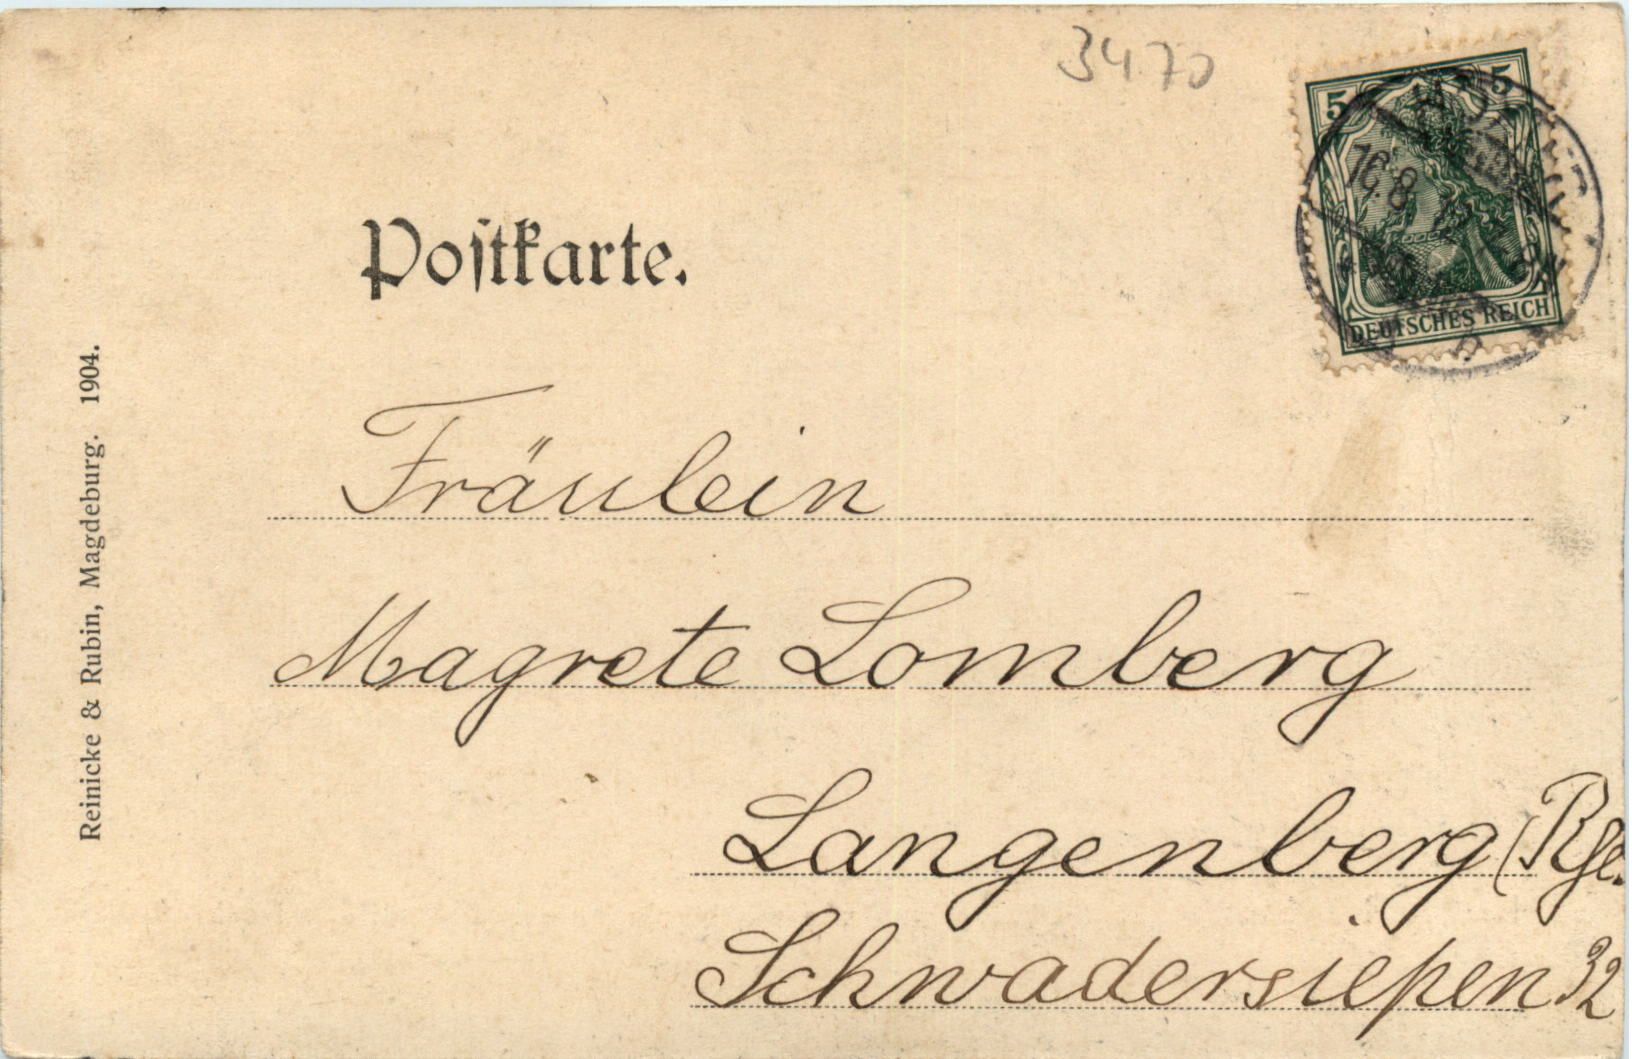 3470
5 5
16.8
DEUTSCHES REICH
Poſtkarte.
Reinicke & Rubin, Magdeburg. 1904.
Fräulein
Magrete Lomberg
Langenberg (Rhl.
Schwadersiepen 32